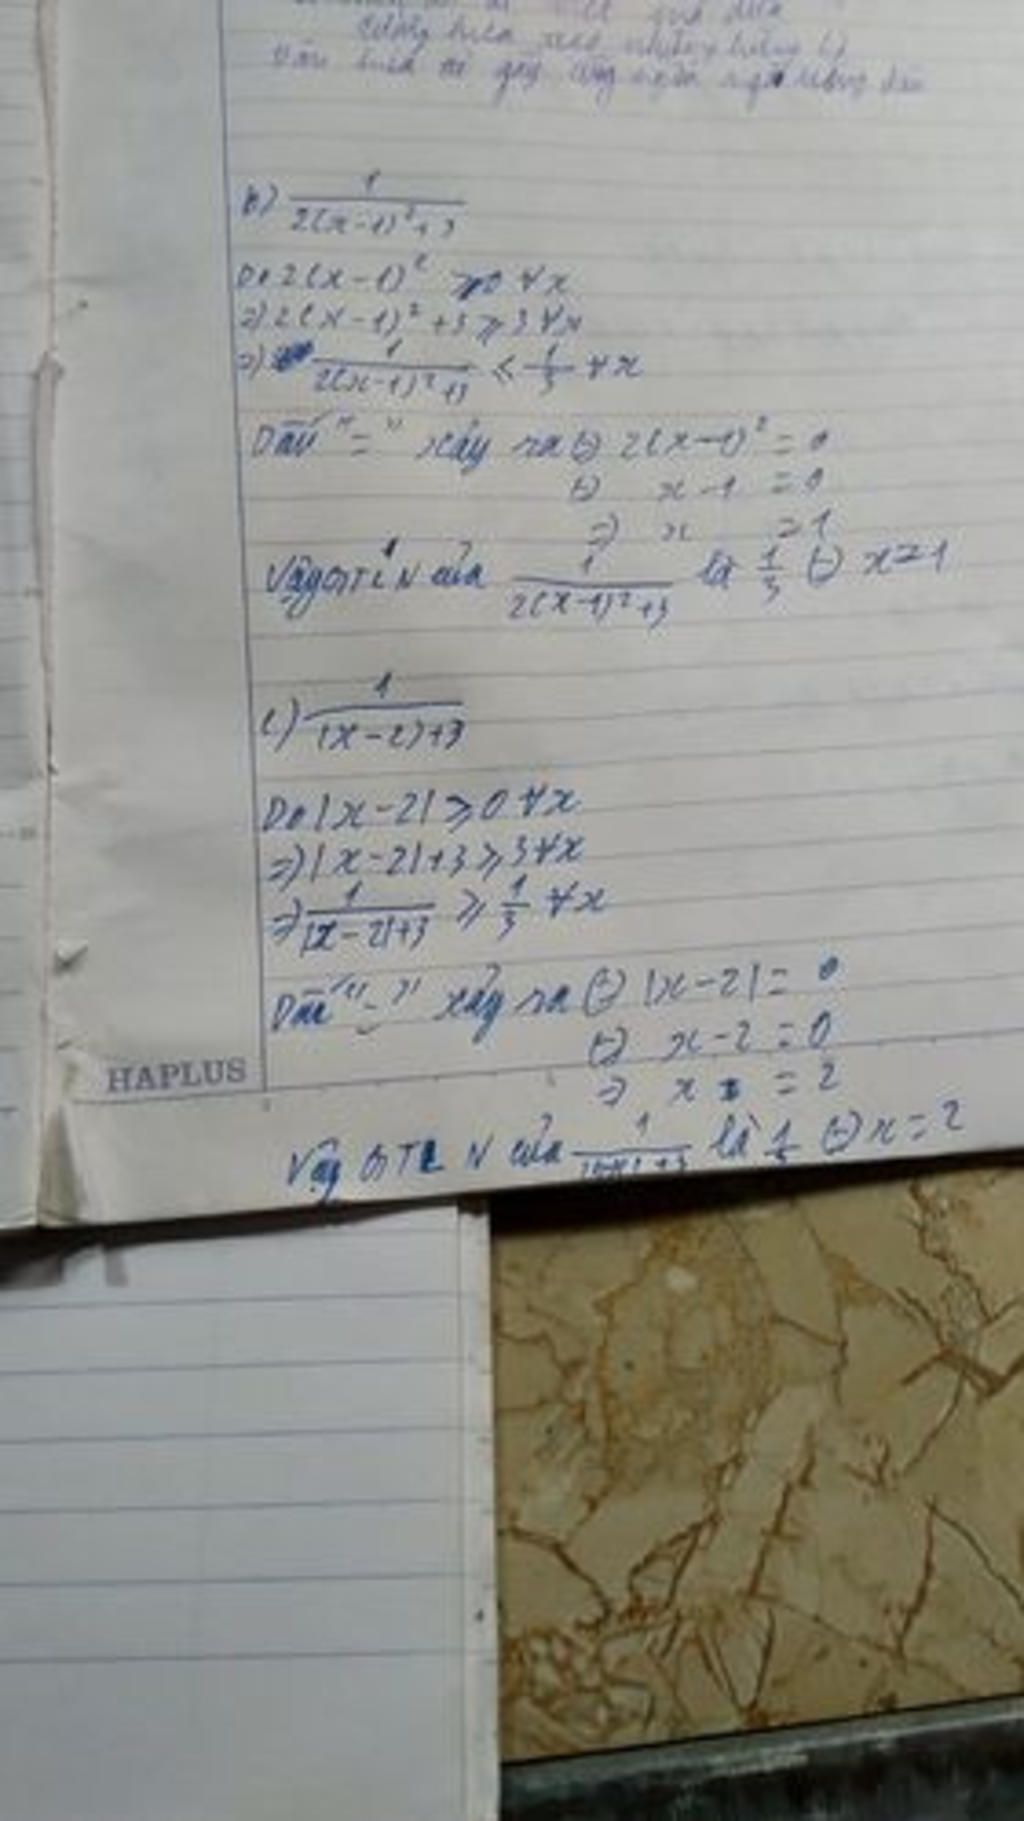 b) 1/(2(x-1)²+3)
Do 2(x-1)² ≥ 0 ∀x
=> 2(x-1)² + 3 ≥ 3 ∀x
=> 1/(2(x-1)²+3) ≤ 1/3 ∀x
Dấu "=" xảy ra (=) 2(x-1)² = 0
(=) x-1 = 0
=) x = 1
Vậy GTLN của 1/(2(x-1)²+3) là 1/3 (=) x=1
c) 1/(|x-2|+3)
Do |x-2| ≥ 0 ∀x
=> |x-2|+3 ≥ 3 ∀x
=> 1/(|x-2|+3) ≥ 1/3 ∀x
Dấu "=" xảy ra (=) |x-2| = 0
(=) x-2 = 0
=) x = 2
HAPLUS
Vậy GTLN của là (=) x=2